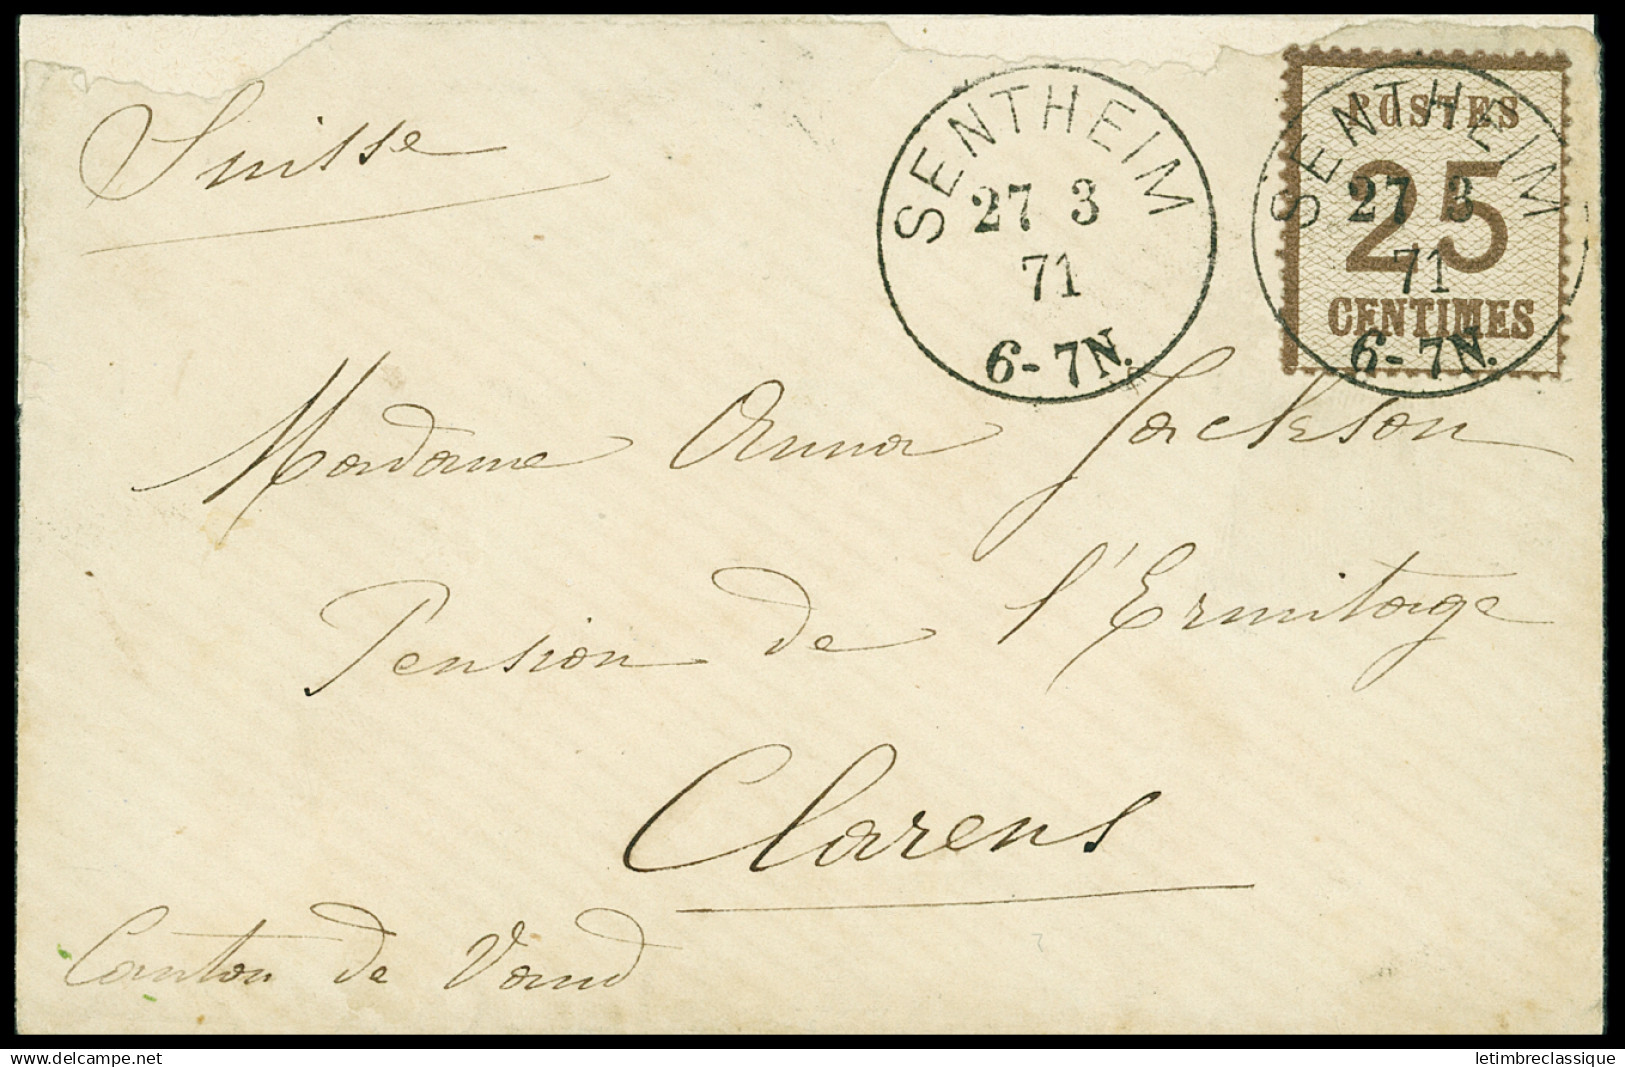 Suisse
SENTHEIM
27 3
71
6-7N.
POSTES
25
CENTIMES
SENTHEIM
27 3
71
6-7N.
Madame Anna Jackson
Pension de l'Ermitage
Clarens
Canton de Vaud
delcampe.net
letimbreclassique